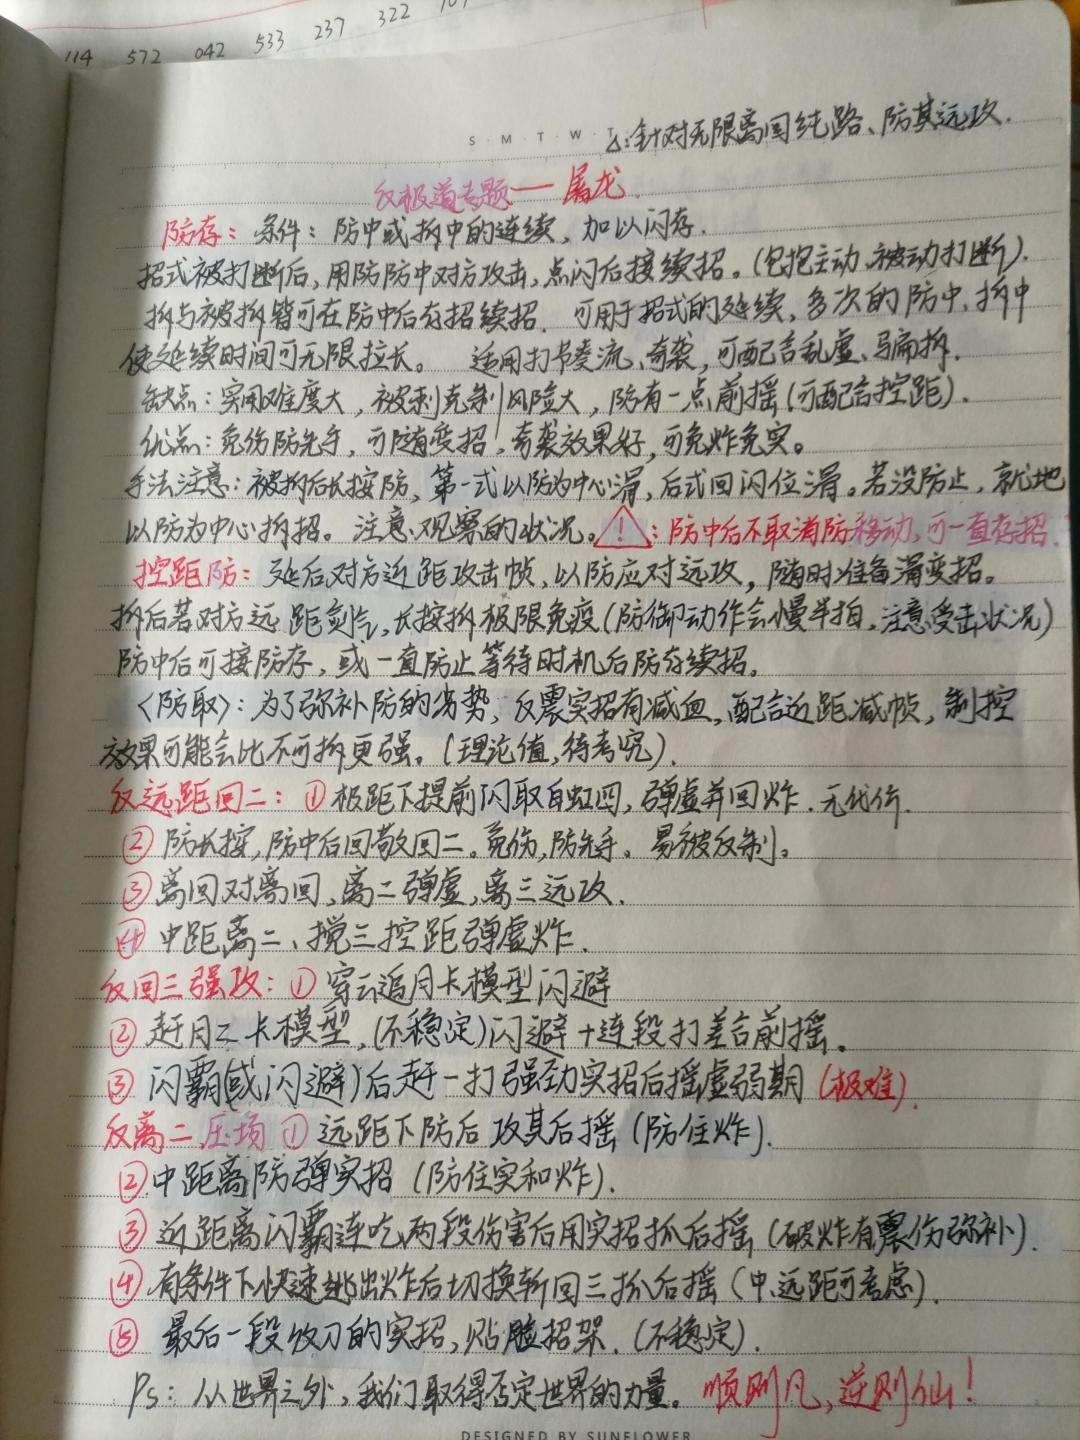 114 572 042 533 237 322
S·M·T·W·T
△:针对无限离回纯路、防其远攻.
反极道专题——屠龙.
防存:条件:防中或拆中的连续,加以闪存.
招式被打断后,用防防中对方攻击,点闪后接续招。(包抱主动、被动打断).
拆与被拆皆可在防中后存招续招. 可用于招式的延续,多次的防中、拆中
使延续时间可无限拉长。 适用打节奏流、奇袭,可配合乱虚、骗拆.
缺点:实用难度大,被刺克制风险大,防有一点前摇(可配合控距).
优点:免伤防先手,可随变招,奇袭效果好,可免炸免实。
手法注意:被拆后长按防,第一式以防为中心滑,后式回闪位滑。若没防止,就地
以防为中心拆招。注意观察的状况。⚠:防中后不取消防移动,可一直存招.
控距防:延后对方近距攻击帧,以防应对远攻,随时准备滑变招。
拆后若对方远距剑气,长按拆极限免疫(防御动作会慢半拍,注意受击状况)
防中后可接防存,或一直防止等待时机后防存续招。
〈防取〉:为了弥补防的劣势,反震实招有减血,配合近距减帧,制控
效果可能会比不可拆更强。(理论值,待考究).
反远距回二:①极距下提前闪取自虹四,弹虚并回炸.无代价.
②防长按,防中后回敬回二。免伤,防先手。易被反制。
③离回对离回,离二弹虚,离三远攻.
④中距离二、搅三控距弹虚炸.
反回三强攻:①穿云追月卡模型闪避
②赶月二卡模型,(不稳定)闪避+连段打差合前摇。
③闪霸(或闪避)后赶一打强劲实招后摇虚弱期(极难).
反离二压场①远距下防后攻其后摇(防住炸).
②中距离防弹实招(防住实和炸).
③近距离闪霸连吃两段伤害后用实招抓后摇(破炸有震伤弥补).
④有条件下快速逃出炸后切换斩回三抓后摇(中、远距可考虑).
⑤最后一段收刀的实招,贴脸招架.(不稳定).
Ps:从世界之外,我们取得否定世界的力量。顺则凡,逆则仙!
DESIGNED BY SUNFLOWER